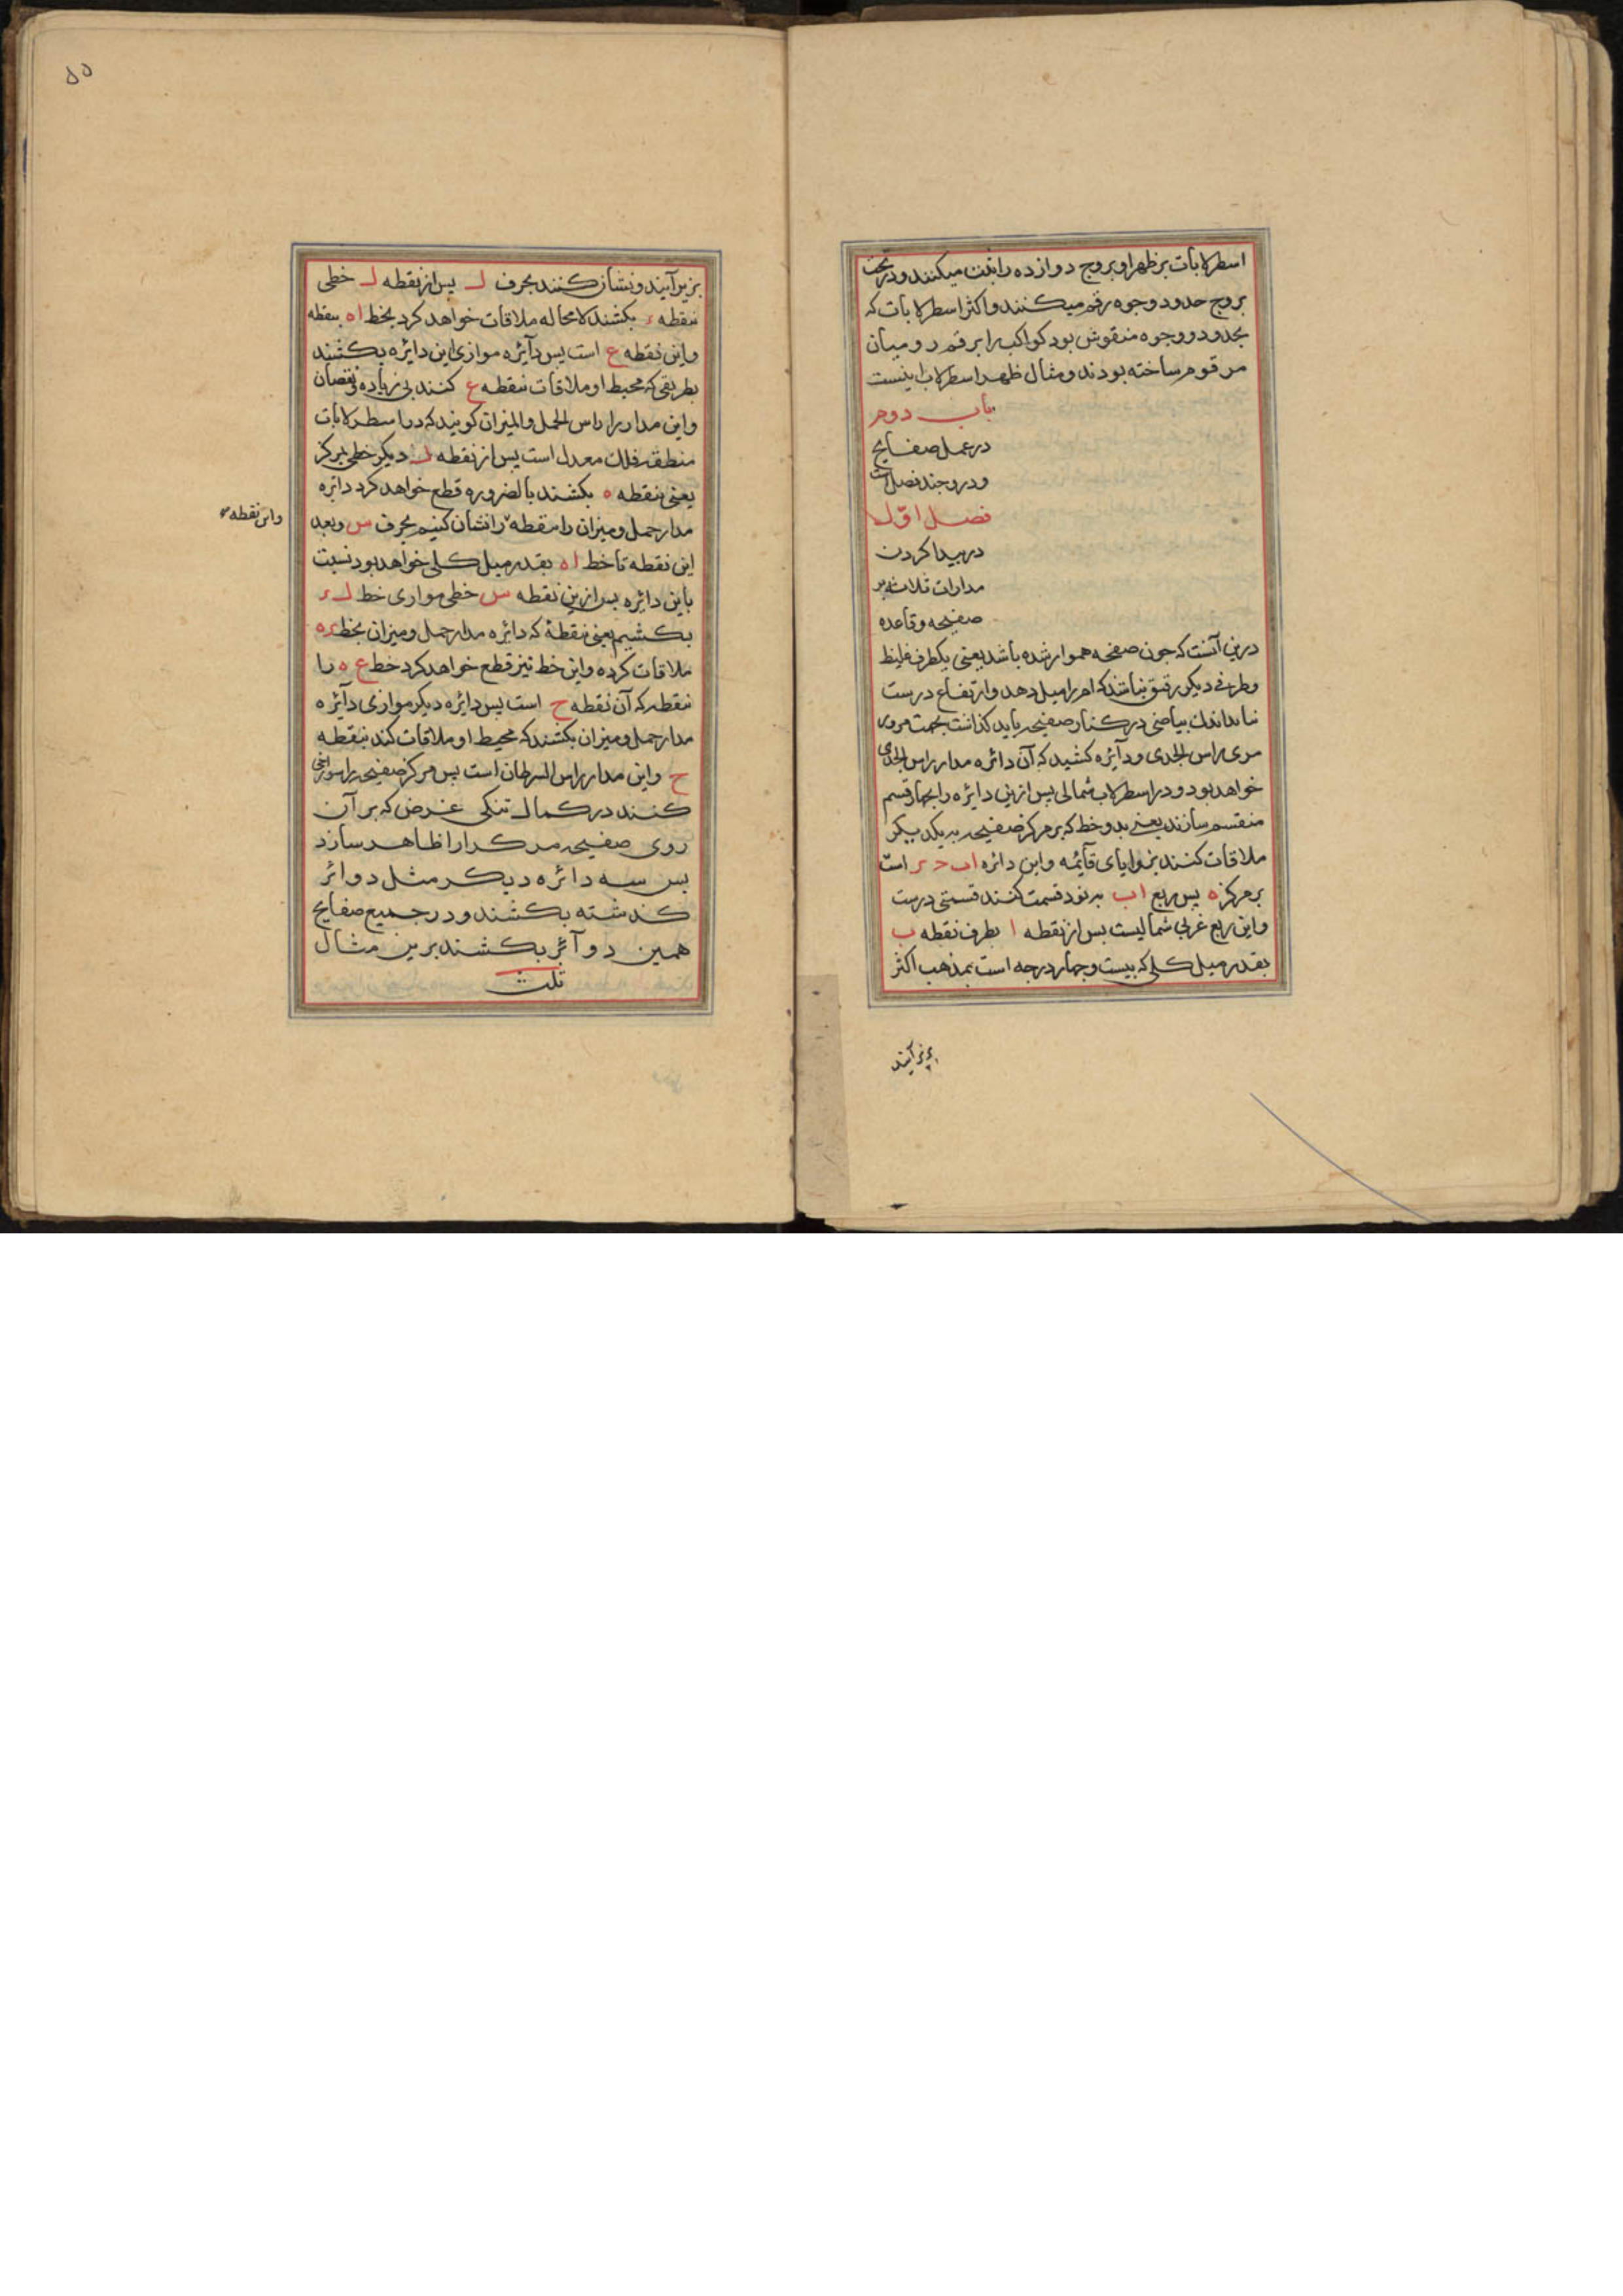 اسطرلابات بر ظهر او بروج دوازده را ثبت میکنند و در تحت
بروج حدود و وجوه رقم میکنند و اکثر اسطرلابات که
بحدود و وجوه منقوش بود کواکب را برقم رومیان
مرقوم ساخته بودند و مثال ظهر اسطرلاب اینست
باب دوم
در عمل صفایح
و درو چند فصل است
فصل اول
در پیدا کردن
مدارات ثلاثه بر
صفیحه و قاعده
درین آنست که چون صفحه هموار شده باشد یعنی یکطرف غلیظ
و طرفی دیکر رقیق نباشد که امر را میل دهد و ارتفاع درست
نیاید اندک بیاضی در کنار صفیحه باید کذاشت بجهت مرور
مری راس الجدی و دآیره کشید که آن دائره مدار راس الجدی
خواهد بود و در اسطرلاب شمالی پس ازین دایره را بچهار قسم
منقسم سازند یعنی بدو خط که بر مرکز صفیحه بر یکدیکر
ملاقات کنند بزوایای قآیمه و این دائره اب ح د است
بر مرکز ه پس ربع اب بر نود قسمت کنند قسمتی درست
و این ربع غربی شمالیست پس از نقطه ا بطرف نقطه ب
بقدر میل کلی که بیست و چهار درجه است بمذهب اکثر
بزیر آیند
۵۵
بزیر آیند و نشان کنند بحرف ل پس از نقطه ل خطی
بنقطه د بکشند لامحاله ملاقات خواهد کرد بخط اه بنقطه
و این نقطه ع است پس دآیره موازی این دایره بکشند
بطریقی که محیط او ملاقات بنقطه ع کنند بی زیاده و نقصان
و این مدار را راس الحمل و المیزان کویند که در اسطرلابات
منطقه فلک معدل است پس از نقطه ل دیکر خطی بمرکز
یعنی بنقطه ه بکشند بالضروره قطع خواهد کرد دایره
مدار حمل و میزان را بنقطه را نشان کنیم بحرف س و بعد
و این نقطه
این نقطه تا خط اه بقدر میل کلی خواهد بود نسبت
باین دائره پس ازین نقطه س خطی موازی خط ل د
بکشیم یعنی بنقطهٔ که دائره مدار حمل و میزان بخط ده
ملاقات کرده و این خط نیز قطع خواهد کرد خط ع ه را
بنقطه که آن نقطه ح است پس دایره دیکر موازی دآیره
مدار حمل و میزان بکشند که محیط او ملاقات کند بنقطه
ح و این مدار راس السرطان است پس مرکز صفیحه را سوراخی
کنند در کمال تنکی غرض که بر آن
روی صفیحه مرکر را ظاهر سازد
پس سه دائره دیکر مثل دوائر
کذشته بکشند و در جمیع صفایح
همین دوآئر بکشند برین مثال
تمت